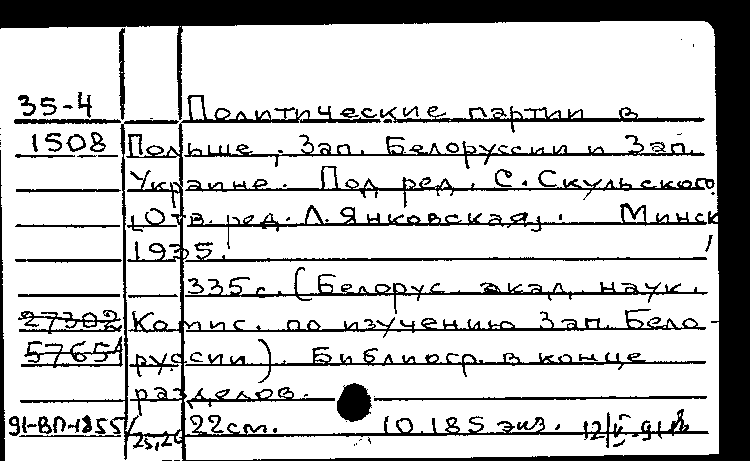 35-4 Политические партии в
1508 Польше, Зап. Белоруссии и Зап.
Украине. Под ред. С. Скульского
[Отв. ред. Л. Янковская]. Минск,
1935.
335 с. (Белорус. акад. наук.
27302 Комис. по изучению Зап. Бело-
57654 руссии). Библиогр. в конце
разделов.
91-ВП-1855/25,26 22см. 10.185 экз. 12/V-91